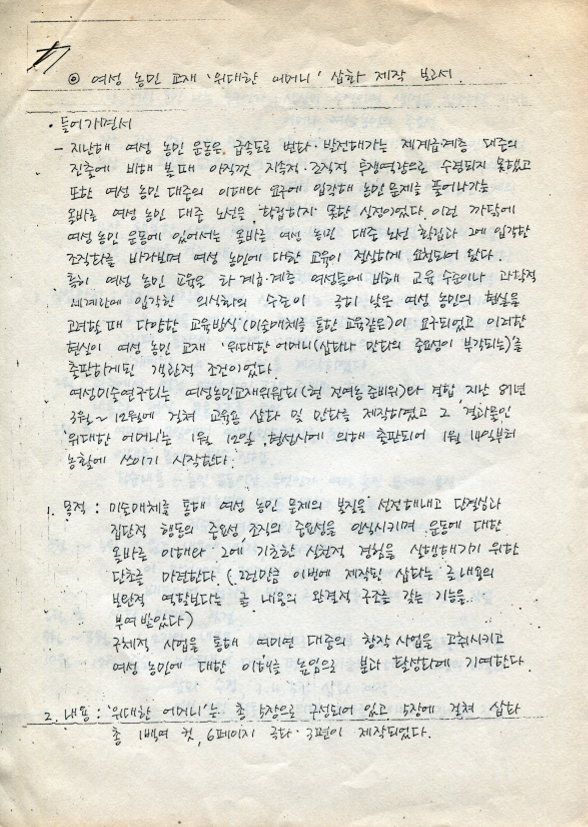 ◎ 여성 농민 교재 '위대한 어머니' 삽화 제작 보고서.
· 들어가면서
- 지난해 여성 농민 운동은 급속도로 변화·발전해가는 제계급계층 대중의
진출에 비해 볼 때 아직껏 지속적·조직적 투쟁역량으로 수렴되지 못했고
또한 여성 농민 대중의 이해와 요구에 입각해 농민문제를 풀어나가는
올바른 여성 농민 대중 노선을 확립하지 못한 실정이었다. 이런 까닭에
여성 농민 운동에 있어서는 올바른 여성 농민 대중 노선 확립과 그에 입각한
조직화를 바라보며 여성 농민에 대한 교육이 절실하게 요청되어 왔다.
특히 여성 농민 교육은 타 계급·계층 여성들에 비해 교육 수준이나 과학적
세계관에 입각한 의식화의 수준이 극히 낮은 여성 농민의 현실을
고려할 때 다양한 교육방식(미술매체를 통한 교육같은)이 요구되었고 이러한
현실이 여성 농민 교재 '위대한 어머니(삽화나 만화의 중요성이 부각되는)'를
출판하게된 객관적 조건이었다.
여성미술연구회는 여성농민교재위원회(현 전여농 준비위)와 결합, 지난 89년
3월~12월에 걸쳐 교육용 삽화 및 만화를 제작하였고 그 결과물인
'위대한 어머니'는 1월 12일, 형성사에 의해 출판되어 1월 14일부터
농활에 쓰이기 시작한다.
1. 목적 : 미술매체를 통해 여성 농민 문제의 본질을 선전해내고 단결성과
집단적 행동의 중요성, 조직의 중요성을 인식시키며 운동에 대한
올바른 이해와 그에 기초한 실천적 경험을 실행해가기 위한
단초를 마련한다 (그런만큼 이번에 제작된 삽화는 글 내용의
보완적 역할보다는 글 내용의 완결적 구조를 갖는 기능을
부여 받았다)
구체적 사업을 통해 여미연 대중의 창작 사업을 고취시키고
여성 농민에 대한 이해를 높임으로 보다 활성화에 기여한다.
2. 내용 : '위대한 어머니'는 총 장으로 구성되어 있고 장에 걸쳐 삽화
총 1백여 컷, 6페이지 극화· 3편이 제작되었다.